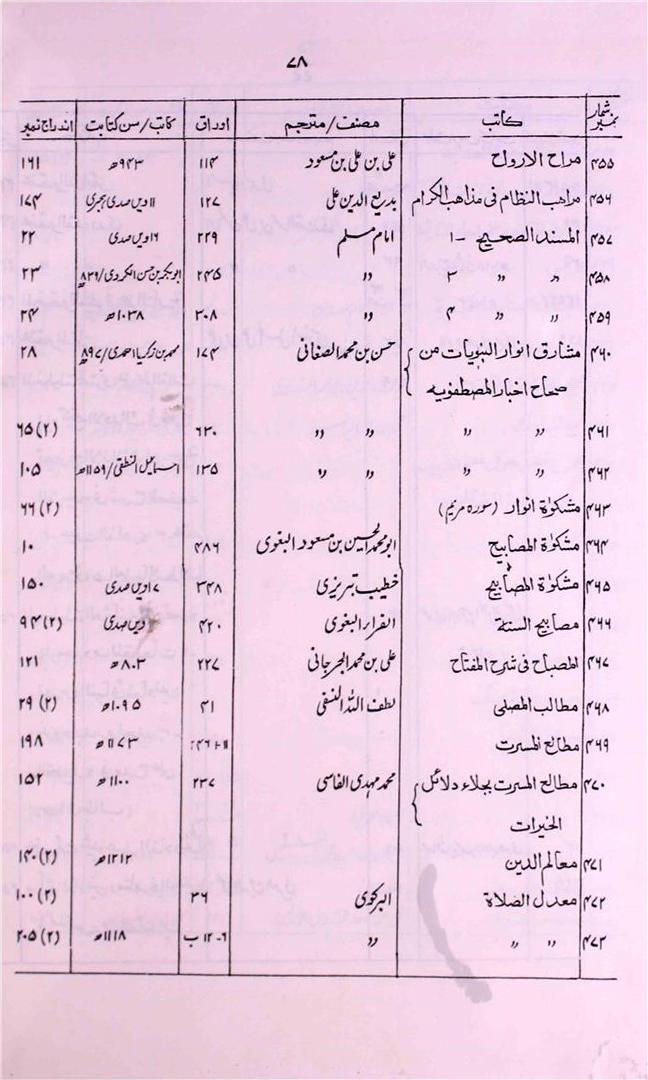 ۷۸
شمار نمبر کاتب مصنف/مترجم اوراق کاتب/سن کتابت اندراج نمبر
۴۵۵ مراح الارواح علی بن علی بن مسعود ۱۱۴ ۹۴۳ھ ۱۶۱
۴۵۶ مراہب النظام فی مذاهب الکرام بدیع الدین علی ۱۲۷ ۱۱ویں صدی ہجری ۱۷۴
۴۵۷ المسند الصحیح -۱ امام مسلم ۲۲۹ ۶ویں صدی ۲۲
۴۵۸ 〃 〃 ۳ 〃 ۲۴۵ ابوبکر بن حسن الکردی/۸۳۹ھ ۲۳
۴۵۹ 〃 〃 ۴ 〃 ۳۰۸ ۱۰۳۸ھ ۲۴
۴۶۰ مشارق انوار النبویات من حسن بن محمد الصغانی ۱۷۴ محمد بن زکریا احمدی/۸۹۷ھ ۲۸
صحاح اخبار المصطفویہ
۴۶۱ 〃 〃 〃 〃 ۶۳۰ (۲)۶۵
۴۶۲ 〃 〃 〃 〃 ۱۳۵ اسماعیل النطقی/۱۱۵۹ھ ۱۰۵
۴۶۳ مشکوٰۃ انوار (سورہ مریم) (۲) ۶۶
۴۶۴ مشکوٰۃ المصابیح ابو محمد الحسین بن مسعود البغوی ۴۸۶ ۱۰
۴۶۵ مشکوٰۃ المصابیح خطیب تبریزی ۳۴۸ ۷ویں صدی ۱۵۰
۴۶۶ مصابیح السنۃ الفرار البغوی ۴۲۰ ویں صدی (۲) ۹۴
۴۶۷ المصباح فی شرح المفتاح علی بن محمد الجرجانی ۲۲۷ ۸۰۳ھ ۱۲۱
۴۶۸ مطالب المصلی لطف اللہ النسفی ۴۱ ۱۰۹۵ھ (۲) ۲۹
۴۶۹ مطالع المسرت ۱۱۷۳ھ ۱۹۸
۴۷۰ مطالع المسرت بجلاء دلائل محمد مہدی الفاسی ۲۳۷ ۱۱۰۰ھ ۱۵۲
الخیرات
۴۷۱ معالم الدین ۱۲۱۲ھ (۲) ۱۴۰
۴۷۲ معدل الصلاۃ البرکوی ۳۶ (۲) ۱۰۰
۴۷۳ 〃 〃 〃 ۶-۱۲ ب ۱۱۱۸ھ (۲) ۲۰۵